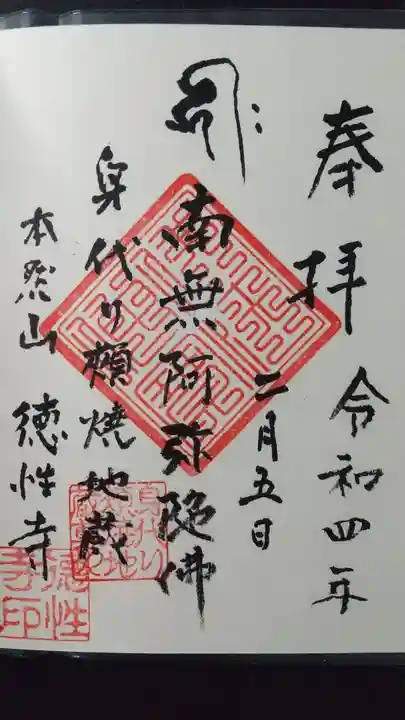 奉拝 令和四年
二月五日
南無阿弥陀佛
身代り頬焼地蔵
本然山 徳性寺
徳性寺印